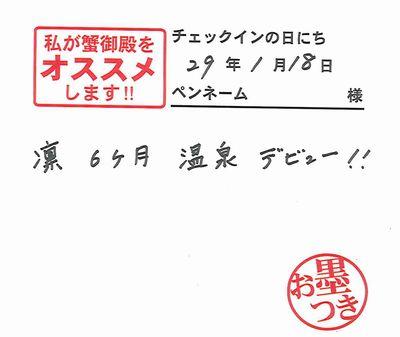 私が蟹御殿を
オススメ
します!!
チェックインの日にち
29年1月18日
ペンネーム 様
凛 6ケ月 温泉 デビュー!!
お墨
つき